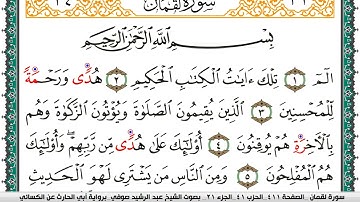 سورة لقمان
بِسْمِ اللَّهِ الرَّحْمَٰنِ الرَّحِيمِ
الٓمٓ ١ تِلْكَ ءَايَٰتُ الْكِتَٰبِ الْحَكِيمِ ٢ هُدًى وَرَحْمَةً
لِّلْمُحْسِنِينَ ٣ الَّذِينَ يُقِيمُونَ الصَّلَوٰةَ وَيُؤْتُونَ الزَّكَوٰةَ وَهُم
بِالْأَخِرَةِ هُمْ يُوقِنُونَ ٤ أُوْلَٰٓئِكَ عَلَىٰ هُدًى مِّن رَّبِّهِمْ وَأُوْلَٰٓئِكَ
هُمُ الْمُفْلِحُونَ ٥ وَمِنَ النَّاسِ مَن يَشْتَرِى لَهْوَ الْحَدِيثِ
سورة لقمان الصفحة ٤١١ الحزب ٤١ الجزء ٢١ بصوت الشيخ عبد الرشيد صوفي برواية أبي الحارث عن الكسائي